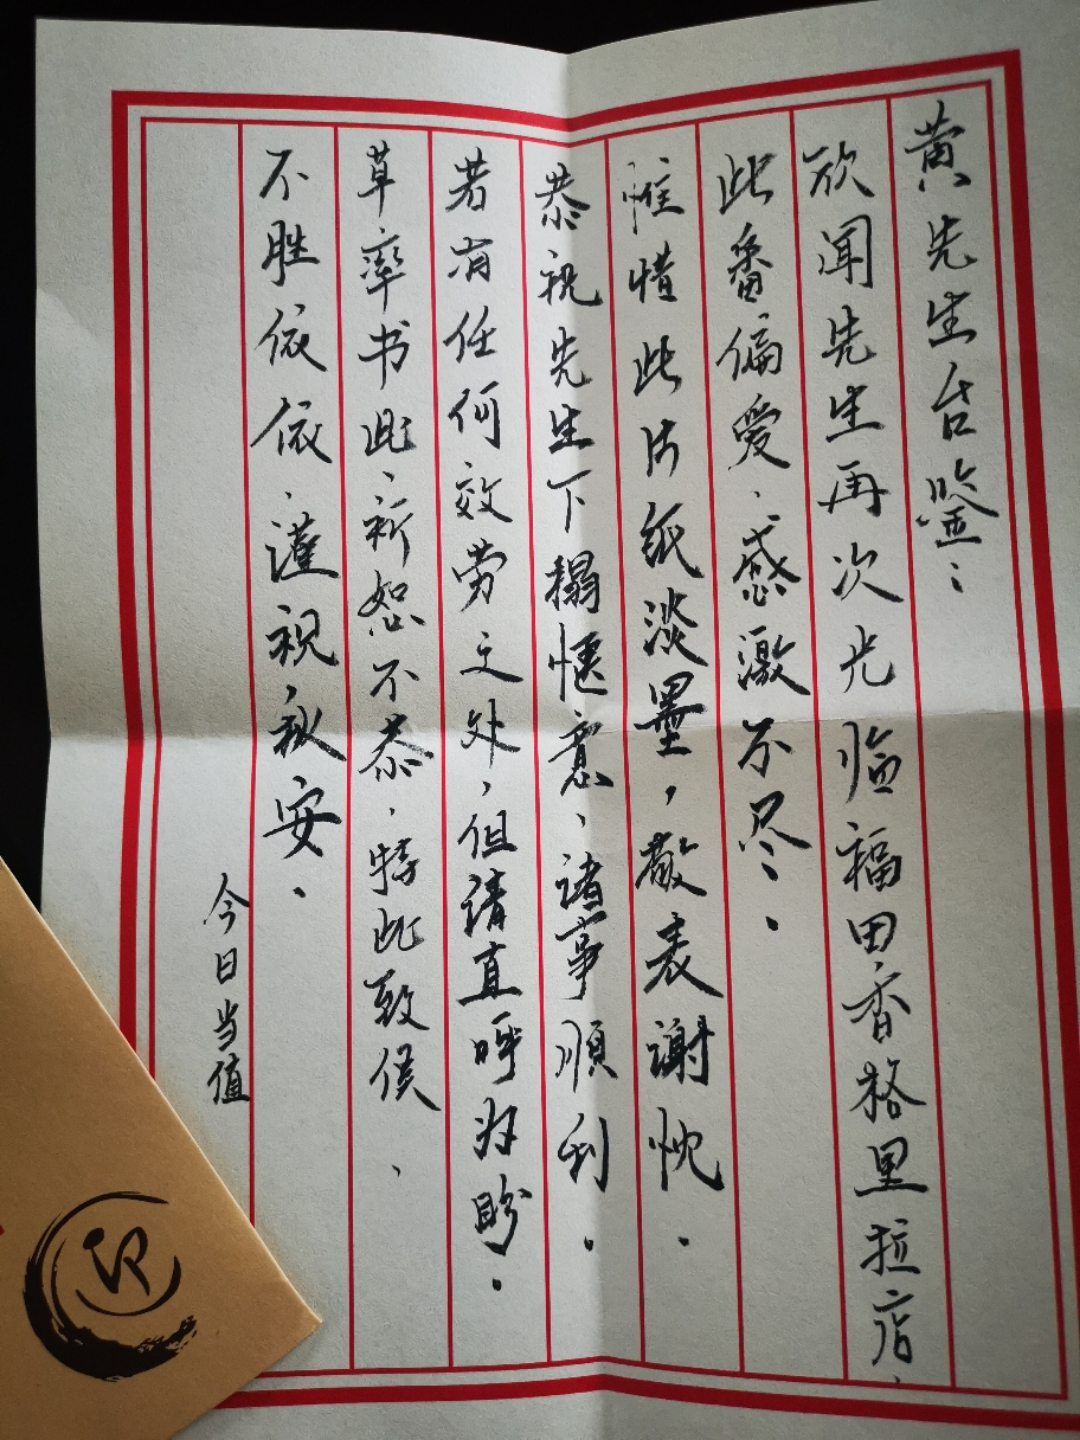 黄先生台鉴：
欣闻先生再次光临福田香格里拉店，
此番偏爱、感激不尽。
惟惜此片纸淡墨，敬表谢忱。
恭祝先生下榻惬意、诸事顺利。
若有任何效劳之处，但请直呼为盼。
草率书此、祈恕不恭，特此致候、
不胜依依、谨祝，秋安。
今日当值